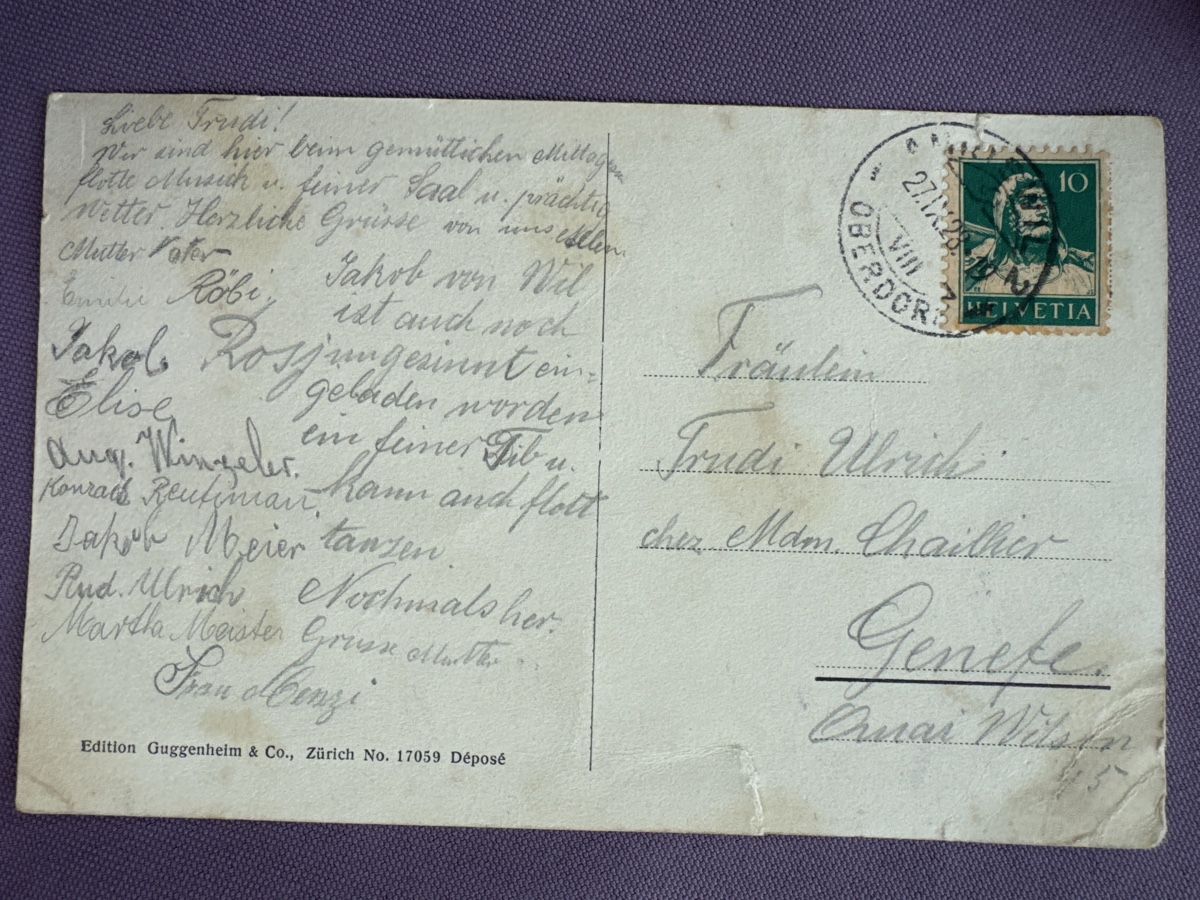 Liebe Trudi!
Wir sind hier beim gemütlichen Mittagessen
flotte Musick u. feiner Saal u. prächtig
Wetter. Herzliche Grüsse von uns allen
Mutter Vater
Emilie Röbi
Jakob Rosj
Elise
Aug. Winzeler.
Konrad Reutiman
Jakob Meier
Rud. Ulrich
Martha Meister
Frau Menzi
Jakob von Wil
ist auch noch
jungesinnt ein=
geladen worden
ein feiner Tib u.
kann auch flott
tanzen
Nochmals her.
Grüsse Mutter
Edition Guggenheim & Co., Zürich No. 17059 Déposé
27.IX.28.
VIII
OBERDORF
10
HELVETIA
Fräulein
Trudi Ulrich
chez Mdm. Chaillier
Genefe.
Quai Wilson
45